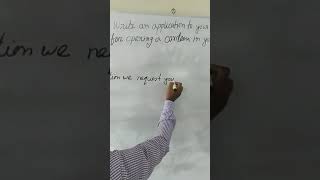 Write an application to your
fore opening a canteen in yo
tion we request you